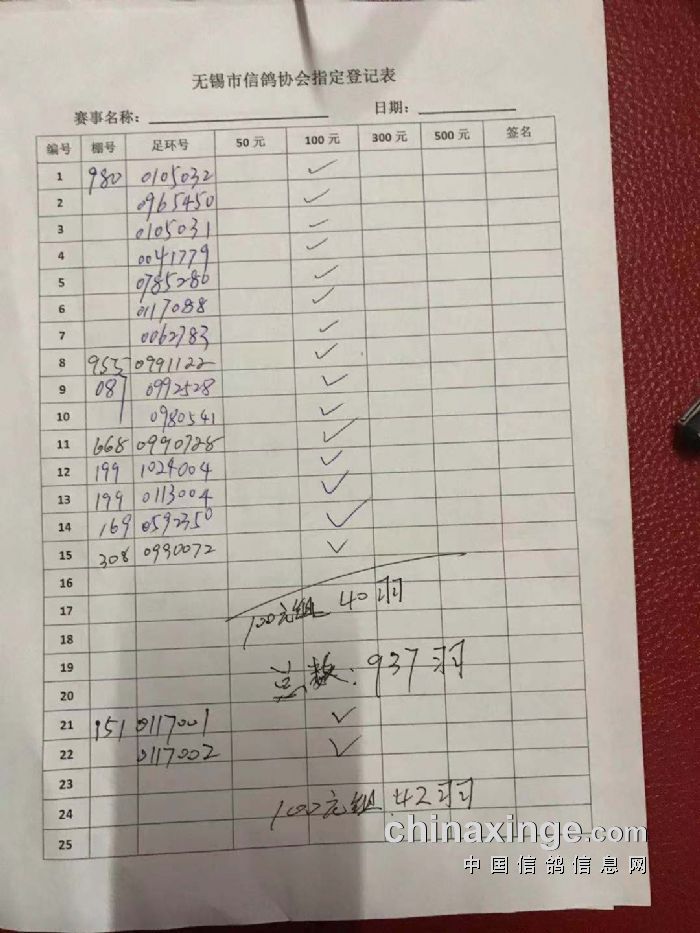 无锡市信鸽协会指定登记表
赛事名称： 日期：
编号 棚号 足环号 50元 100元 300元 500元 签名
1 980 0105032 ✓
2 0965450 ✓
3 0105031 ✓
4 0041779 ✓
5 0785280 ✓
6 0117088 ✓
7 0062783 ✓
8 955 0991122 ✓
9 087 0992528 ✓
10 0980541 ✓
11 668 0990728 ✓
12 199 1024004 ✓
13 199 0113004 ✓
14 169 0592350 ✓
15 308 0930072 ✓
16
17 100元组 40羽
18
19 总数：937羽
20
21 151 0117001 ✓
22 0117002 ✓
23
24 100元组 42羽
25
chinaxinge.com
中国信鸽信息网